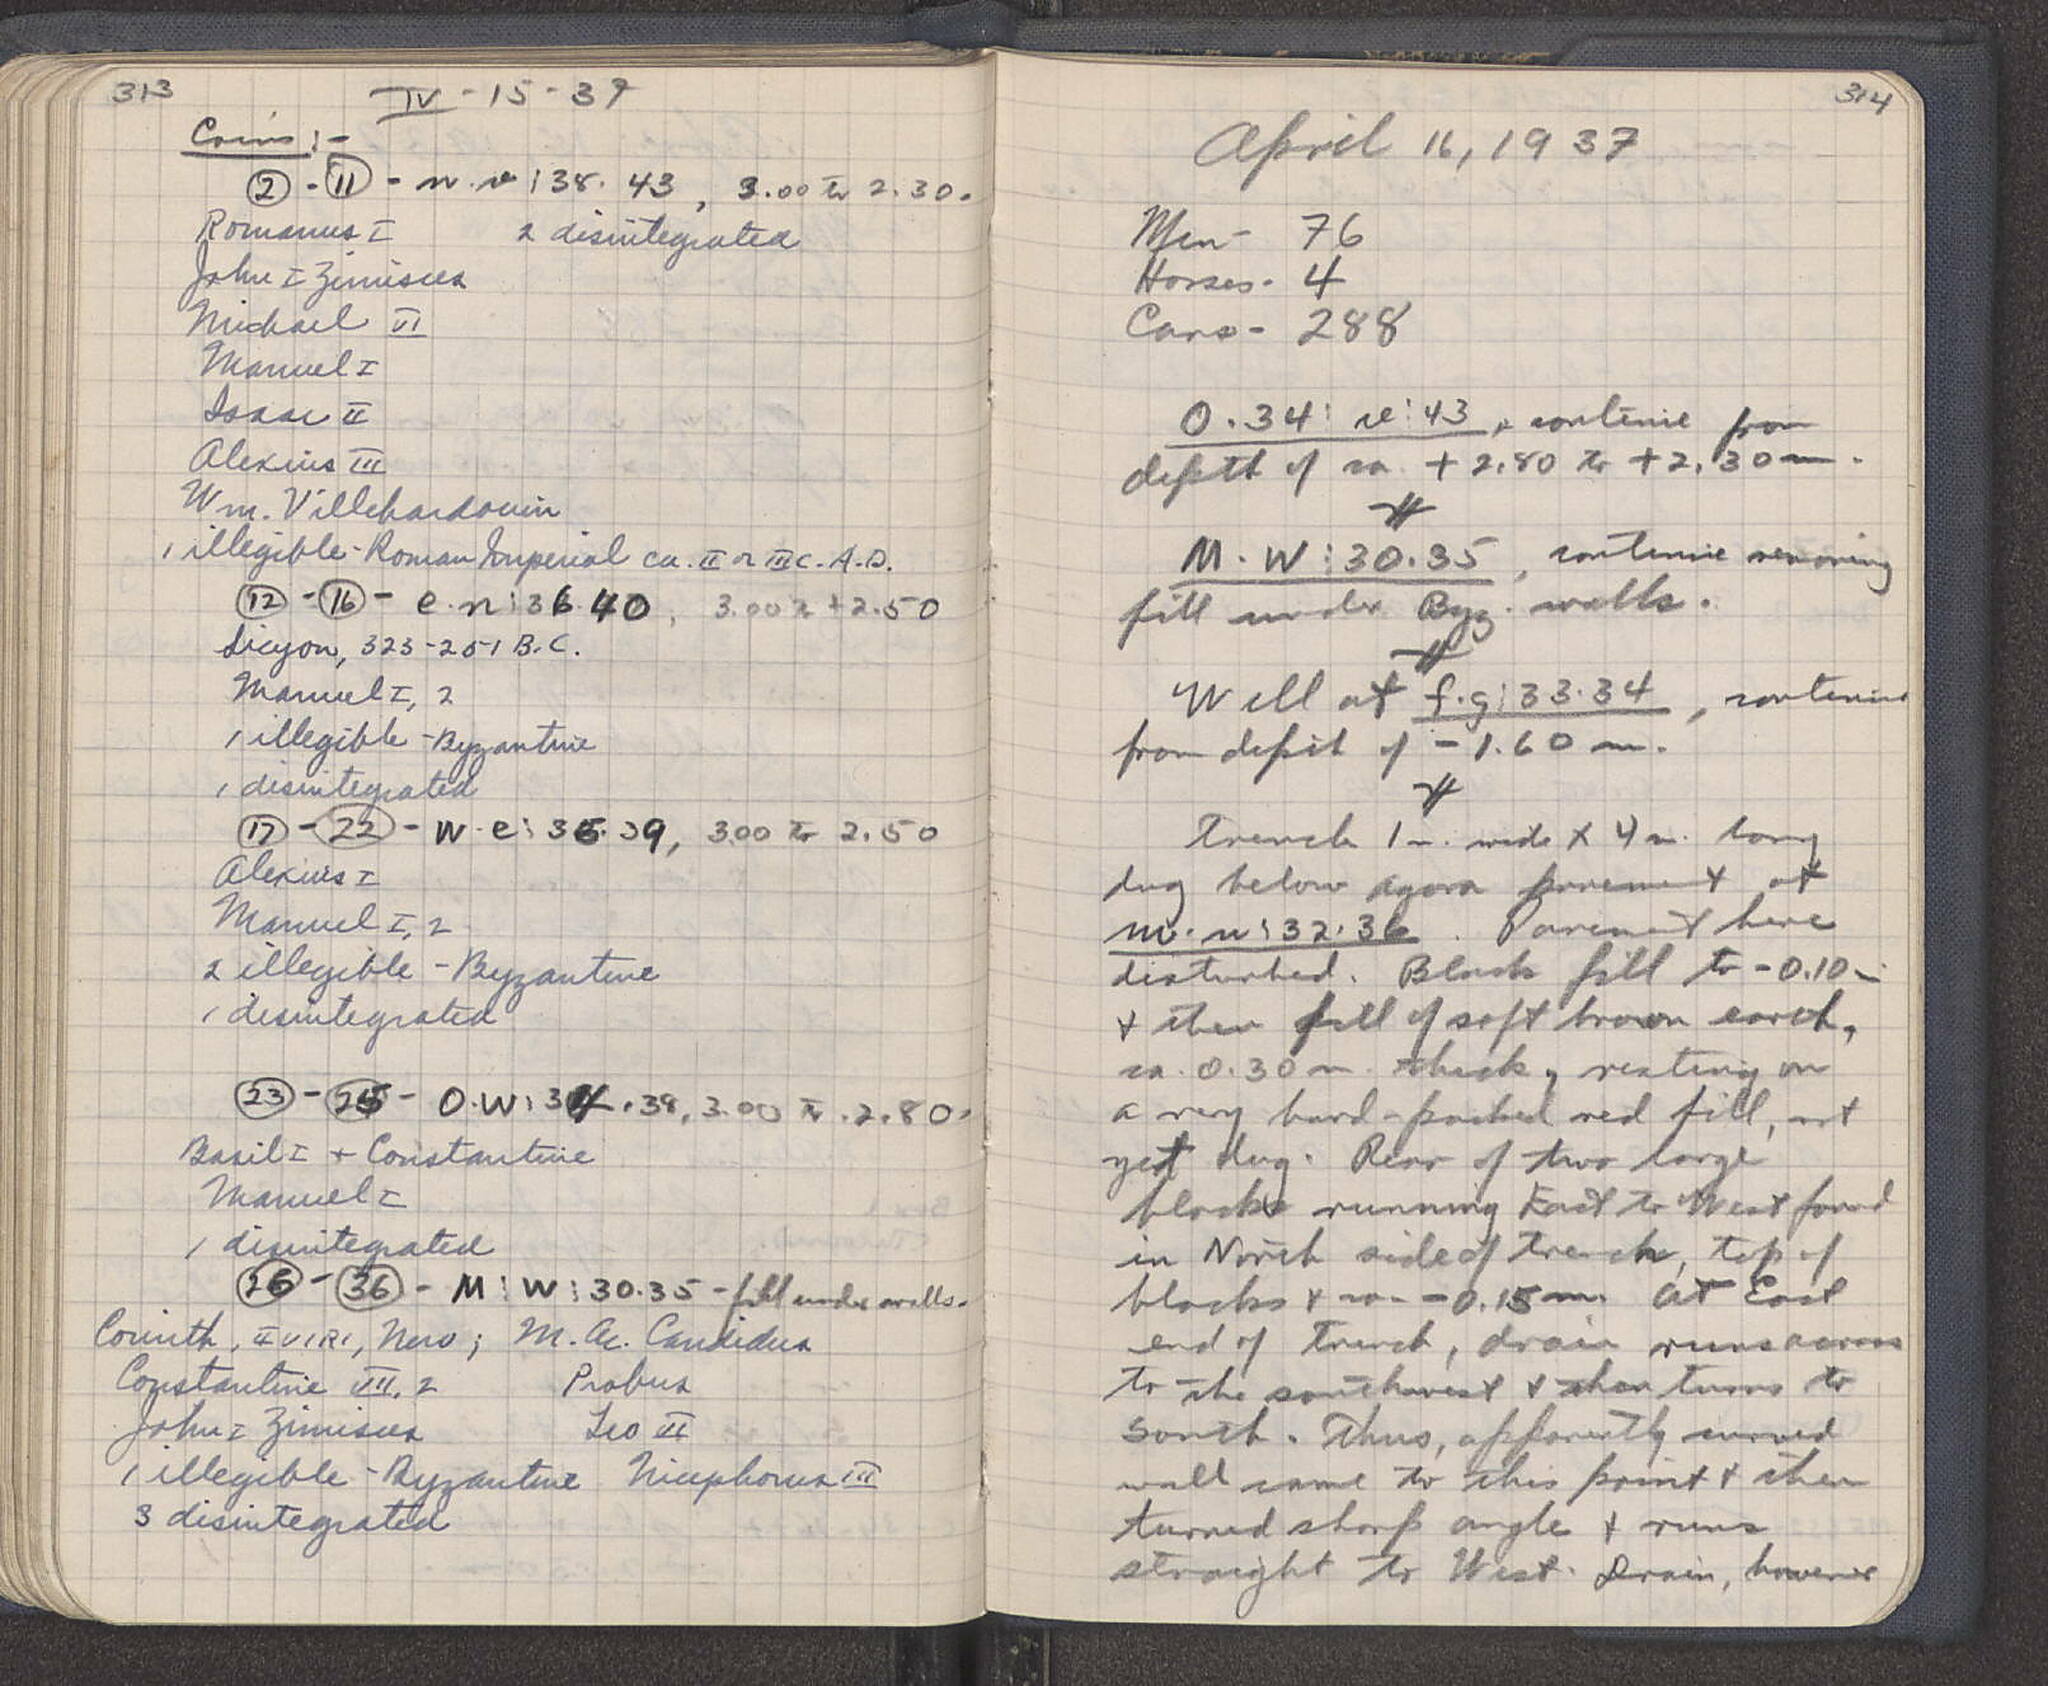 313
IV - 15 - 37
Coins :-
2 - 11 - n.v : 38.43, 3.00 to 2.30.
Romanus I 2 disintegrated
John I Zimisces
Michael VI
Manuel I
Isaac II
Alexius III
Wm. Villehardouin
1 illegible - Roman Imperial ca. II or III C. A.D.
12 - 16 - e.n : 36.40, 3.00 to +2.50
Sicyon, 323-251 B.C.
Manuel I, 2
1 illegible - Byzantine
1 disintegrated
17 - 22 - w.e : 36.39, 3.00 to 2.50
Alexius I
Manuel I, 2
2 illegible - Byzantine
1 disintegrated
23 - 25 - O.W : 34.38, 3.00 to 2.80.
Basil I + Constantine
Manuel I
1 disintegrated
26 - 36 - M : W : 30.35 - fill under walls.
Corinth, II VIRI, Nero; M. Ac. Candidus
Constantine VII, 2 Probus
John I Zimisces Leo VI
1 illegible - Byzantine Nicephorus III
3 disintegrated
314
April 16, 1937
Men - 76
Horses - 4
Cars - 288
O.34 : : 43, continue from
depth of ca. +2.80 to +2.30 m.
M.W : 30.35, continue removing
fill under Byz. walls.
Well at f.g : 33.34, continue
from depth of -1.60 m.
Trench 1 m. wide x 4 m. long
dug below agora pavement at
m.n : 32.36. Pavement here
disturbed. Black fill to -0.10 m
+ then fill of soft brown earth,
ca. 0.30 m. thick, resting on
a very hard-packed red fill, not
yet dug. Rear of two large
blocks running East to West found
in North side of trench, top of
blocks + ca. -0.15 m. At East
end of trench, drain runs across
to the southwest + then turns to
South. Thus, apparently curved
wall came to this point + then
turned sharp angle + runs
straight to West. Drain, however